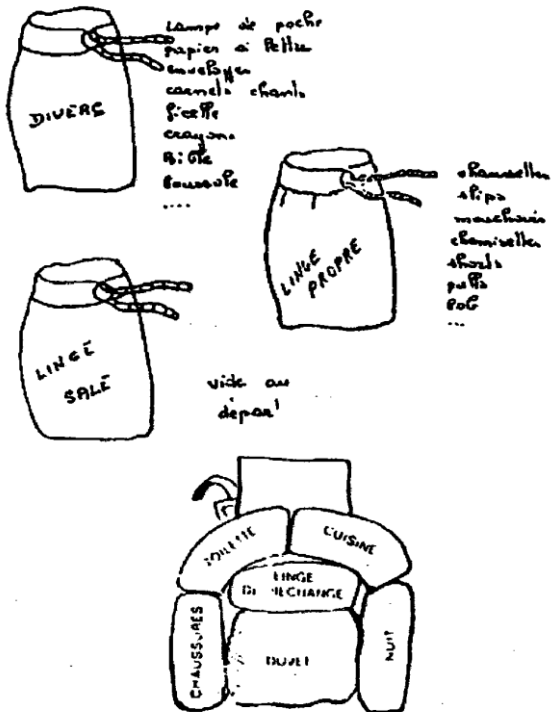 DIVERS
Lampe de poche
papier à lettre
enveloppes
carnets chants
ficelle
crayons
Bible
boussole
....
LINGE
PROPRE
chaussettes
slips
mouchoirs
chemisettes
shorts
pulls
...
LINGE
SALE
vide au
départ
TOILETTE
CUISINE
LINGE
DE RECHANGE
CHAUSSURES
DUVET
NUIT